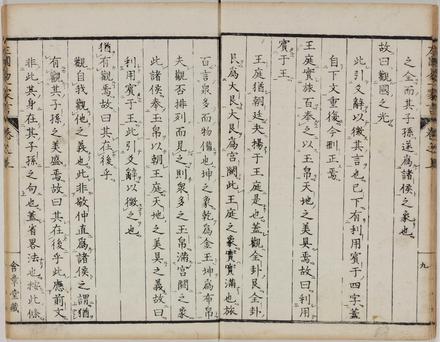 之全而其子孫送為諸侯之象也
故曰觀國之光
此引爻辭以徵其言也已下有利用賓于四字蓋
自下文重復今刪正焉
王庭實旅百奉之以玉帛天地之美具焉故曰利用
賓于王
王庭猶朝廷夬揚于王庭是也蓋觀全卦艮全卦
艮為大艮大艮為宮闕此王庭之象實實滿也旅
百言衆多而物備也坤之象乾為金玉坤為布帛
夫觀否排列而見之則衆多之玉帛滿宮闕之象
此諸侯奉玉帛以朝王庭天地之美具之義故曰
利用賓于王此引爻辭以徵之也
猶有觀焉故曰其在後乎
觀自我觀他之義也此非敬仲直為諸侯之謂猶
有其子孫之美盛焉故曰其在後乎此應前文
非此其身在其子孫之句也蓋省畧法也按此條
九
含章堂藏